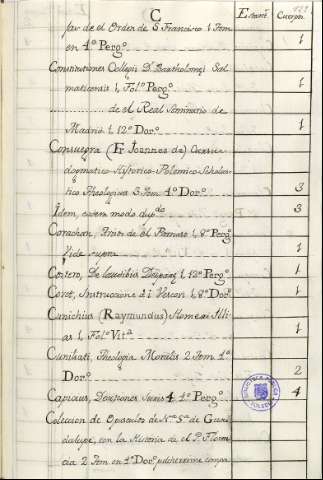 C Estant.e Cuerpos
par de el Orden de S. Francisco 1 Tom
en 4º Pergº 1
Constitutiones Collegij D. Bartholomęi Sal
maticensis 1, Folº Pergº 1
de el Real Seminario de
Madrid 1, 12º Dorº 1
Consuegra (Fr Joannes de)
dogmatico Historico-Polemico-Schola
tico Theologica 3. Tom 4º Dorº 3
Idem, eodem modo dupdo 3
Corachan, de el Parnaso 1, 8º Pergº
Vide supra 1
de Laudibus 1, 12º Pergº 1
Coret, Instruccione di Vescovi 1, 8º Dorº 1
Cunichius (Raymundus) Homeri Illi
as 1, Folº Vitª 1
Cuniliati, Theologia Moralis 2 Tom 4º
Dorº 2
Capicius, Decisiones 4 4º Pergº 4
Coleccion de Opusculos de Nrª Sª de Guad
dalupe, con la Historia de el Pe Floren
cia 2 Tom en 4º Dorº
BIBLIOTECA PUBLICA
TOLEDO